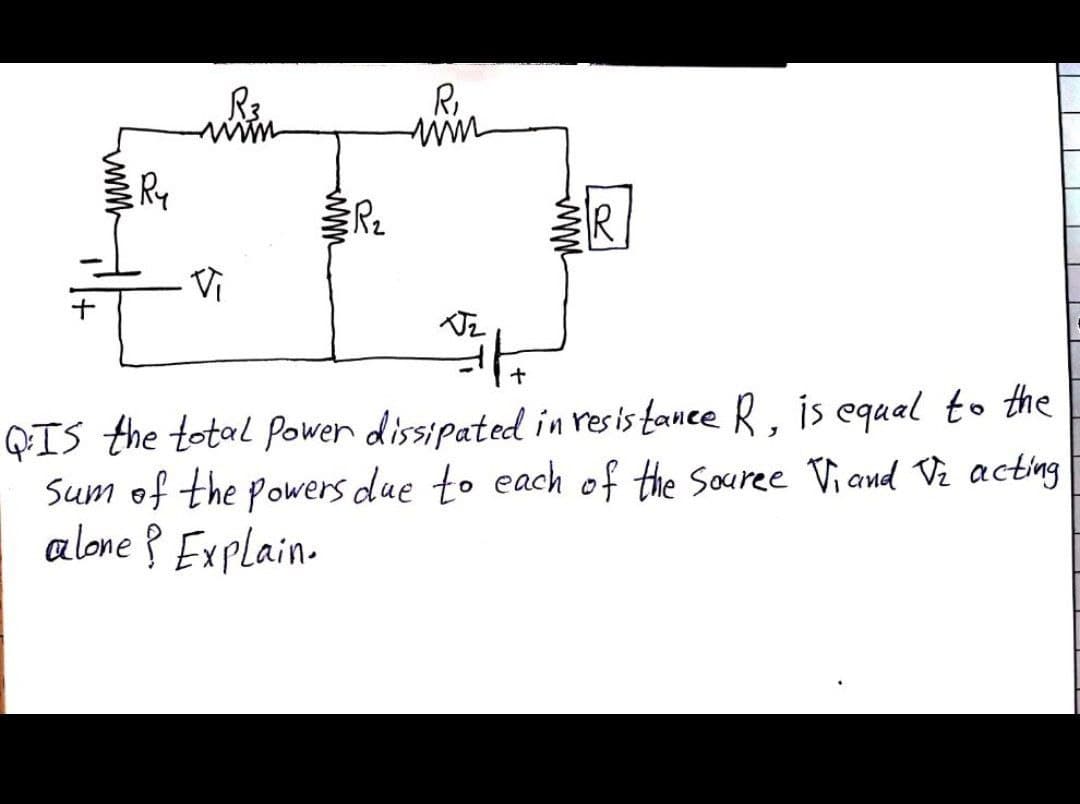 R3
R1
R4
R2
R
V1
V2
-
+
-
+
Q:IS the total Power dissipated in resistance R, is equal to the
sum of the powers due to each of the Souree V1 and V2 acting
alone? Explain.